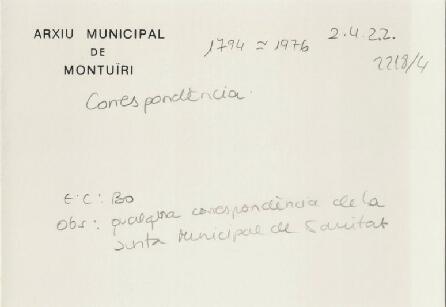 ARXIU MUNICIPAL
DE
MONTUÏRI
1794 ≃ 1976
2.4.22.
2218/4
Correspondència.
E.C: BO
Obs: qualque correspondència de la
Junta Municipal de Sanitat